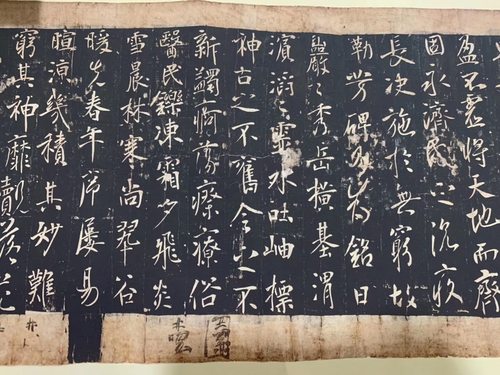 盈不虛將天地而齊
固永濟民之沉疾
長決施於無窮故
勒芳碑乃為銘曰
巖々秀岳橫基渭
濱滔々靈水吐岫標
神古之不舊今之不
新蠲痾蕩瘵療俗
醫民鑠凍霜夕飛炎
雪晨林寒尚翠谷
暖先春年序屢易
暄涼幾積其妙難
窮其神靡覿落花